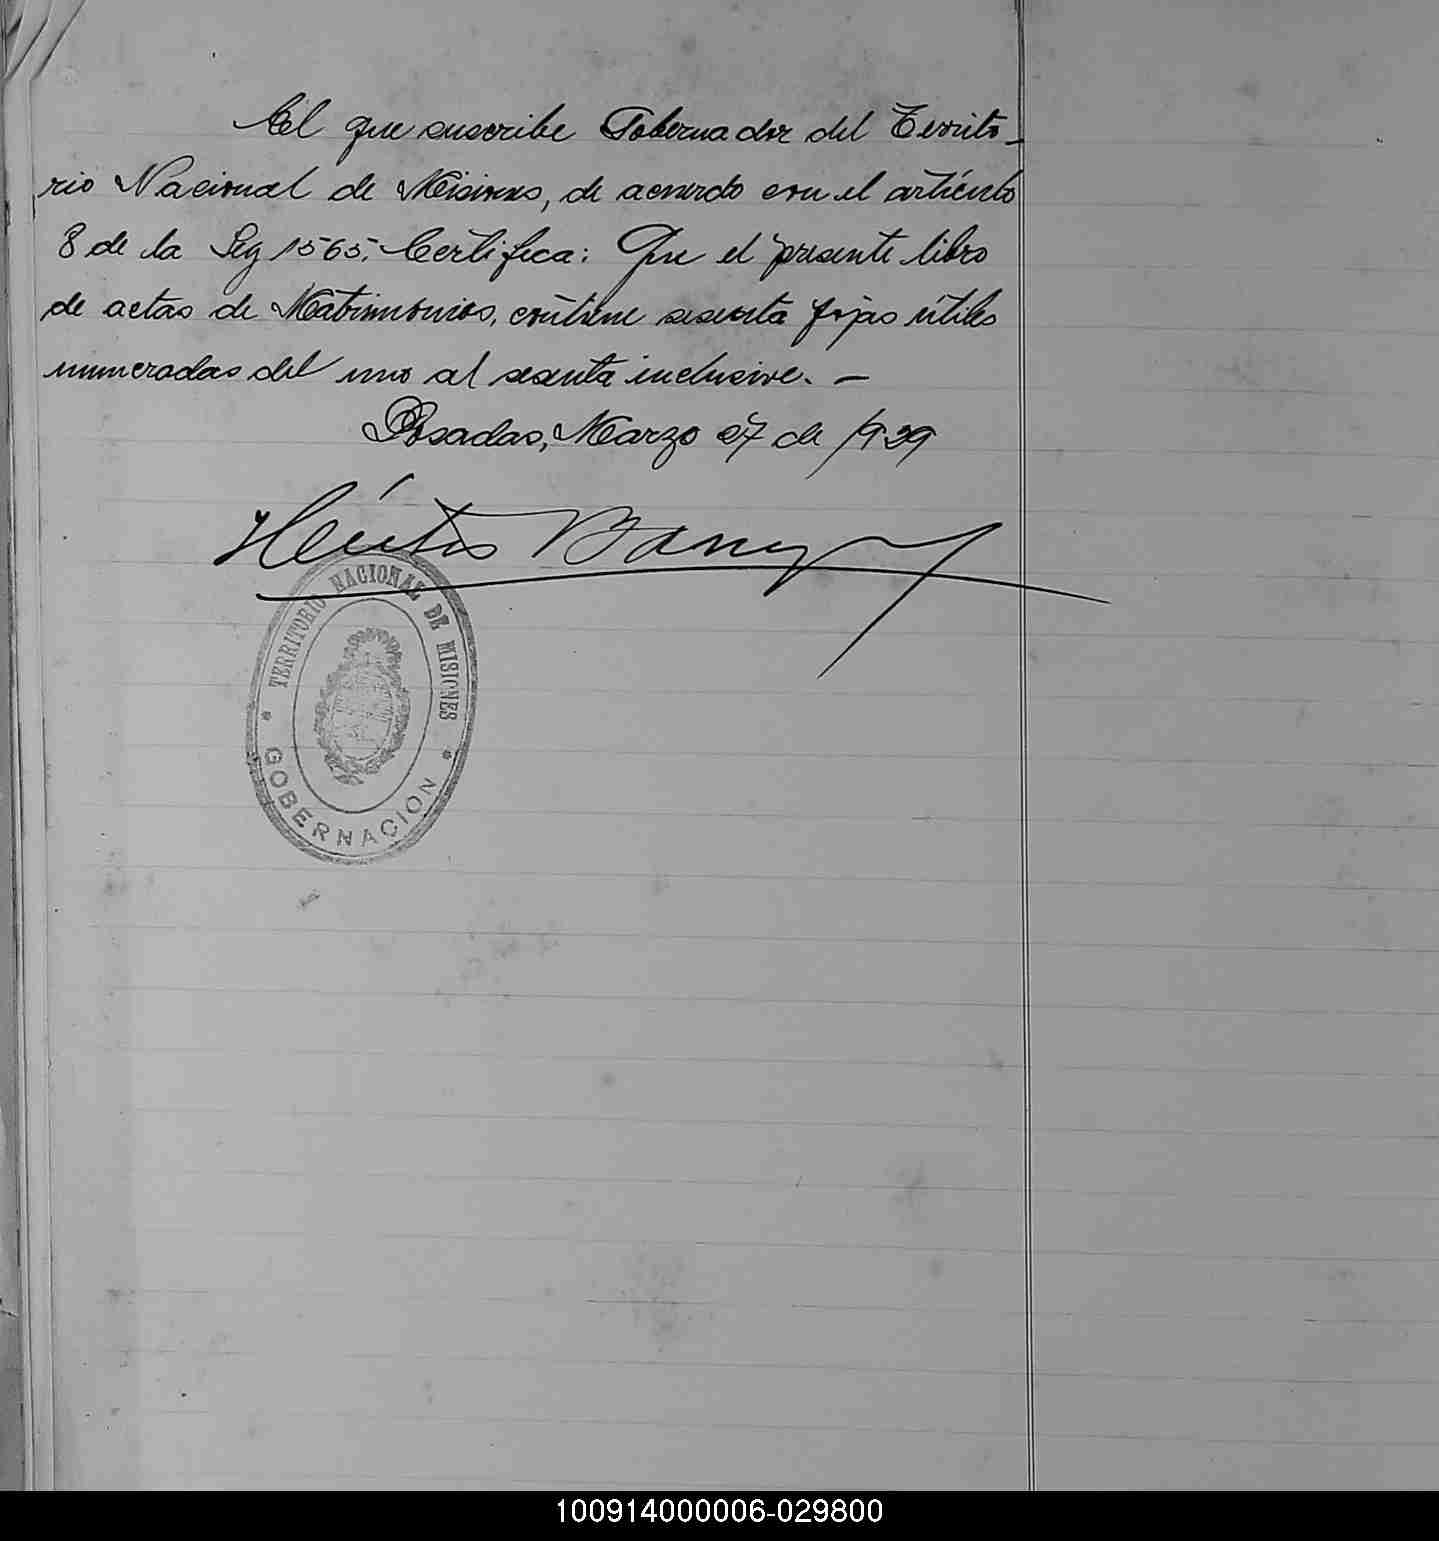 El que suscribe Gobernador del Territo-
rio Nacional de Misiones, de acuerdo con el artículo
8 de la Ley 1565, Certifica: Que el presente libro
de actas de Matrimonios, contiene sesenta fojas útiles
numeradas del uno al sesenta inclusive. —
Posadas, Marzo 27 de 1929
Héctor Barreyro
TERRITORIO NACIONAL DE MISIONES
* GOBERNACION *
100914000006-029800